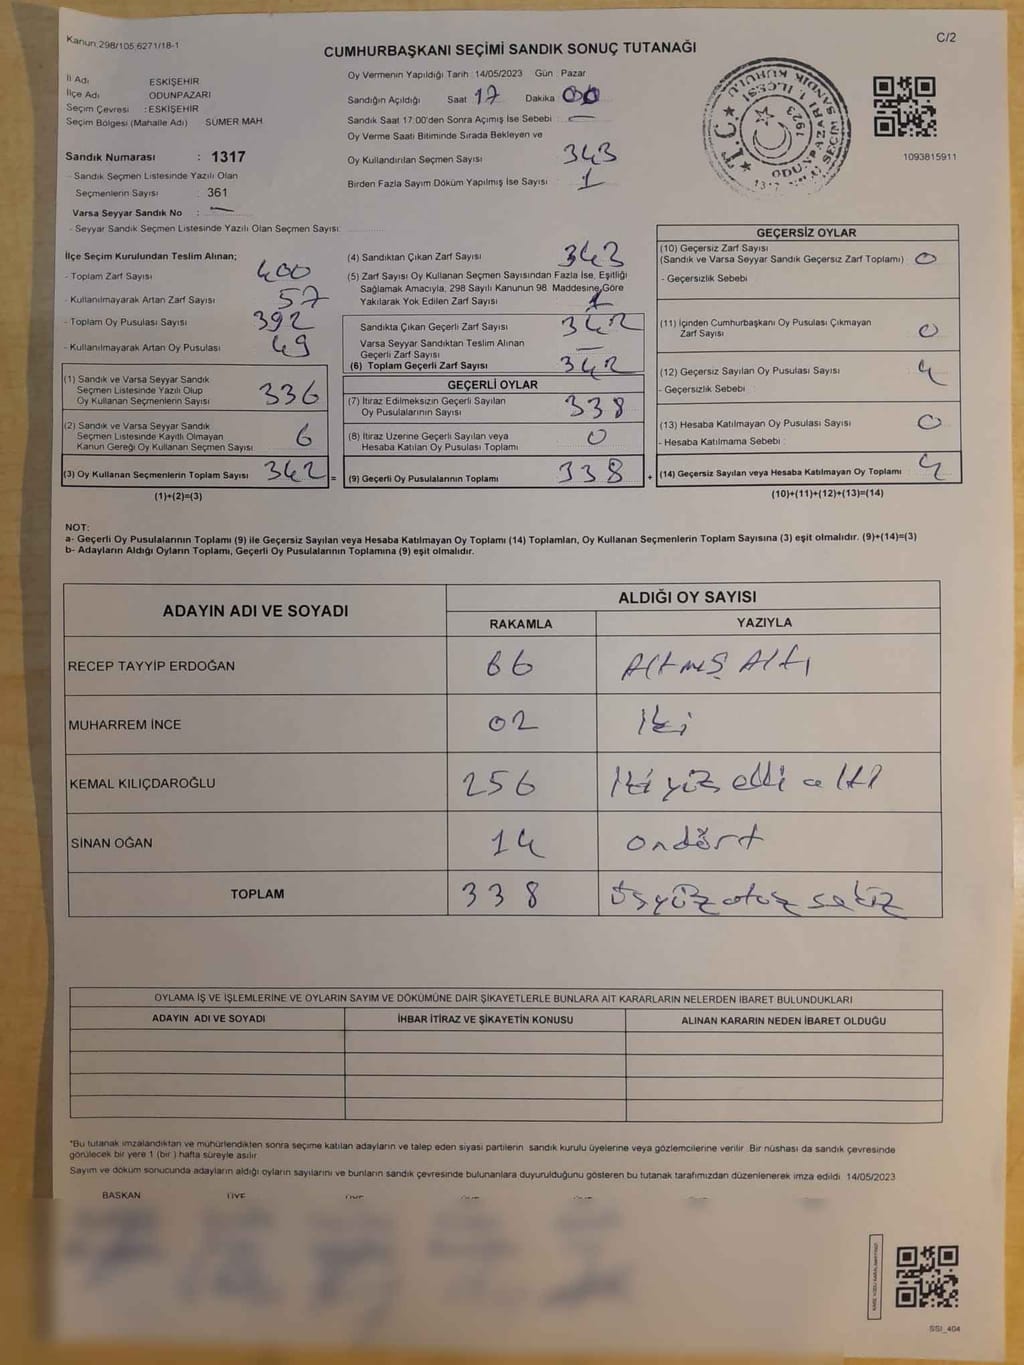 Kanun:298/105,6271/18-1
C/2
CUMHURBAŞKANI SEÇİMİ SANDIK SONUÇ TUTANAĞI
İl Adı ESKİŞEHİR
İlçe Adı ODUNPAZARI
Seçim Çevresi : ESKİŞEHİR
Seçim Bölgesi (Mahalle Adı) SÜMER MAH
Sandık Numarası : 1317
- Sandık Seçmen Listesinde Yazılı Olan
Seçmenlerin Sayısı : 361
Varsa Seyyar Sandık No :
- Seyyar Sandık Seçmen Listesinde Yazılı Olan Seçmen Sayısı:
Oy Vermenin Yapıldığı Tarih :14/05/2023 Gün : Pazar
Sandığın Açıldığı Saat 17 Dakika 00
Sandık Saat 17:00'den Sonra Açımış İse Sebebi :
Oy Verme Saati Bitiminde Sırada Bekleyen ve
Oy Kullandırılan Seçmen Sayısı 343
Birden Fazla Sayım Döküm Yapılmış İse Sayısı 1
T.C.
1923
1093815911
İlçe Seçim Kurulundan Teslim Alınan;
- Toplam Zarf Sayısı 400
- Kullanılmayarak Artan Zarf Sayısı 57
- Toplam Oy Pusulası Sayısı 392
- Kullanılmayarak Artan Oy Pusulası 49
(1) Sandık ve Varsa Seyyar Sandık
Seçmen Listesinde Yazılı Olup
Oy Kullanan Seçmenlerin Sayısı 336
(2) Sandık ve Varsa Seyyar Sandık
Seçmen Listesinde Kayıtlı Olmayan
Kanun Gereği Oy Kullanan Seçmen Sayısı 6
(3) Oy Kullanan Seçmenlerin Toplam Sayısı 342 =
(1)+(2)=(3)
(4) Sandıktan Çıkan Zarf Sayısı 343
(5) Zarf Sayısı Oy Kullanan Seçmen Sayısından Fazla İse, Eşitliği
Sağlamak Amacıyla, 298 Sayılı Kanunun 98. Maddesine Göre
Yakılarak Yok Edilen Zarf Sayısı 1
Sandıkta Çıkan Geçerli Zarf Sayısı 342
Varsa Seyyar Sandıktan Teslim Alınan
Geçerli Zarf Sayısı
(6) Toplam Geçerli Zarf Sayısı 342
GEÇERLİ OYLAR
(7) İtiraz Edilmeksizin Geçerli Sayılan
Oy Pusulalarının Sayısı 338
(8) İtiraz Üzerine Geçerli Sayılan veya
Hesaba Katılan Oy Pusulası Toplamı 0
(9) Geçerli Oy Pusulalarının Toplamı 338 +
GEÇERSİZ OYLAR
(10) Geçersiz Zarf Sayısı
(Sandık ve Varsa Seyyar Sandık Geçersiz Zarf Toplamı) 0
- Geçersizlik Sebebi
(11) İçinden Cumhurbaşkanı Oy Pusulası Çıkmayan
Zarf Sayısı 0
(12) Geçersiz Sayılan Oy Pusulası Sayısı 4
- Geçersizlik Sebebi :
(13) Hesaba Katılmayan Oy Pusulası Sayısı 0
- Hesaba Katılmama Sebebi :
(14) Geçersiz Sayılan veya Hesaba Katılmayan Oy Toplamı 4
(10)+(11)+(12)+(13)=(14)
NOT:
a- Geçerli Oy Pusulalarının Toplamı (9) ile Geçersiz Sayılan veya Hesaba Katılmayan Oy Toplamı (14) Toplamları, Oy Kullanan Seçmenlerin Toplam Sayısına (3) eşit olmalıdır. (9)+(14)=(3)
b- Adayların Aldığı Oyların Toplamı, Geçerli Oy Pusulalarının Toplamına (9) eşit olmalıdır.
ADAYIN ADI VE SOYADI
ALDIĞI OY SAYISI
RAKAMLA YAZIYLA
RECEP TAYYİP ERDOĞAN 66 Altmış Altı
MUHARREM İNCE 02 İki
KEMAL KILIÇDAROĞLU 256 İki yüz elli altı
SİNAN OĞAN 14 ondört
TOPLAM 338 üçyüz otuz sekiz
OYLAMA İŞ VE İŞLEMLERİNE VE OYLARIN SAYIM VE DÖKÜMÜNE DAİR ŞİKAYETLERLE BUNLARA AİT KARARLARIN NELERDEN İBARET BULUNDUKLARI
ADAYIN ADI VE SOYADI İHBAR İTİRAZ VE ŞİKAYETİN KONUSU ALINAN KARARIN NEDEN İBARET OLDUĞU
*Bu tutanak imzalandıktan ve mühürlendikten sonra seçime katılan adayların ve talep eden siyasi partilerin sandık kurulu üyelerine veya gözlemcilerine verilir. Bir nüshası da sandık çevresinde
görülecek bir yere 1 (bir ) hafta süreyle asılır.
Sayım ve döküm sonucunda adayların aldığı oyların sayılarını ve bunların sandık çevresinde bulunanlara duyurulduğunu gösteren bu tutanak tarafımızdan düzenlenerek imza edildi. 14/05/2023
BAŞKAN ÜYE ÜYE
SSI_404